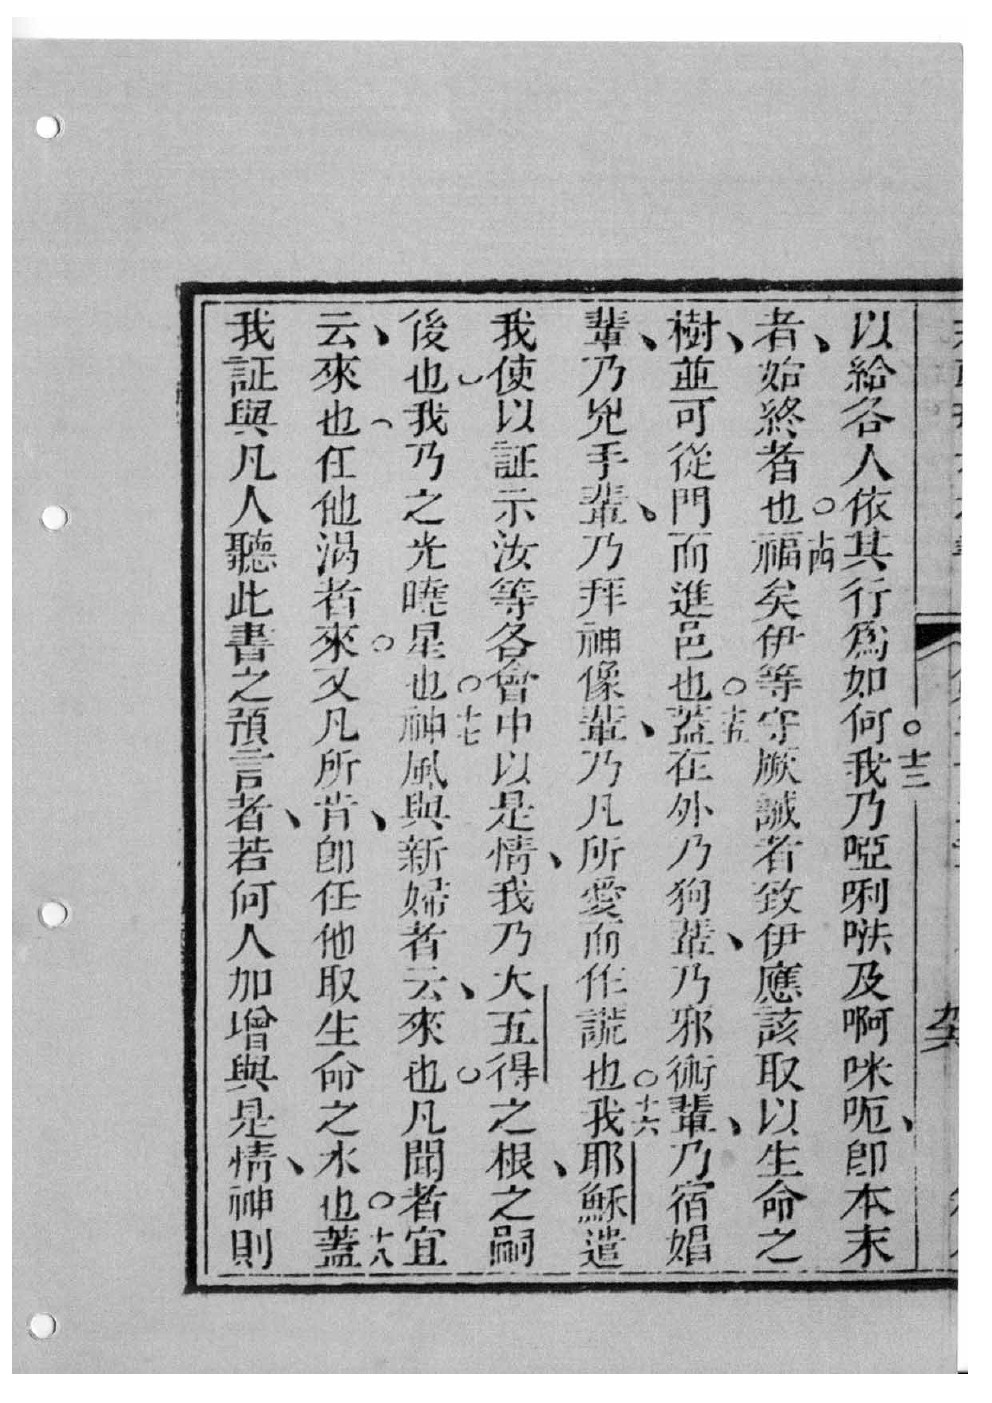 以給各人依其行爲如何○十三我乃啞唎㕹及啊咪呃、卽本末
者、始終者也○十四福矣伊等守厥誡者致伊應該取以生命之
樹、並可從門而進邑也○十五葢在外乃狗輩、乃邪術輩、乃宿娼
輩、乃兇手輩、乃拜神像輩、乃凡所愛而作謊也○十六我耶穌遣
我使以証示汝等各會中以是情、我乃大五得之根、之嗣
後也我乃之光曉星也○十七神風與新婦者云、來也凡聞者宜
云、來也任他渴者來○又凡所肯、卽任他取生命之水也○十八蓋
我証與凡人聽此書之預言者、若何人加增與是情、神則